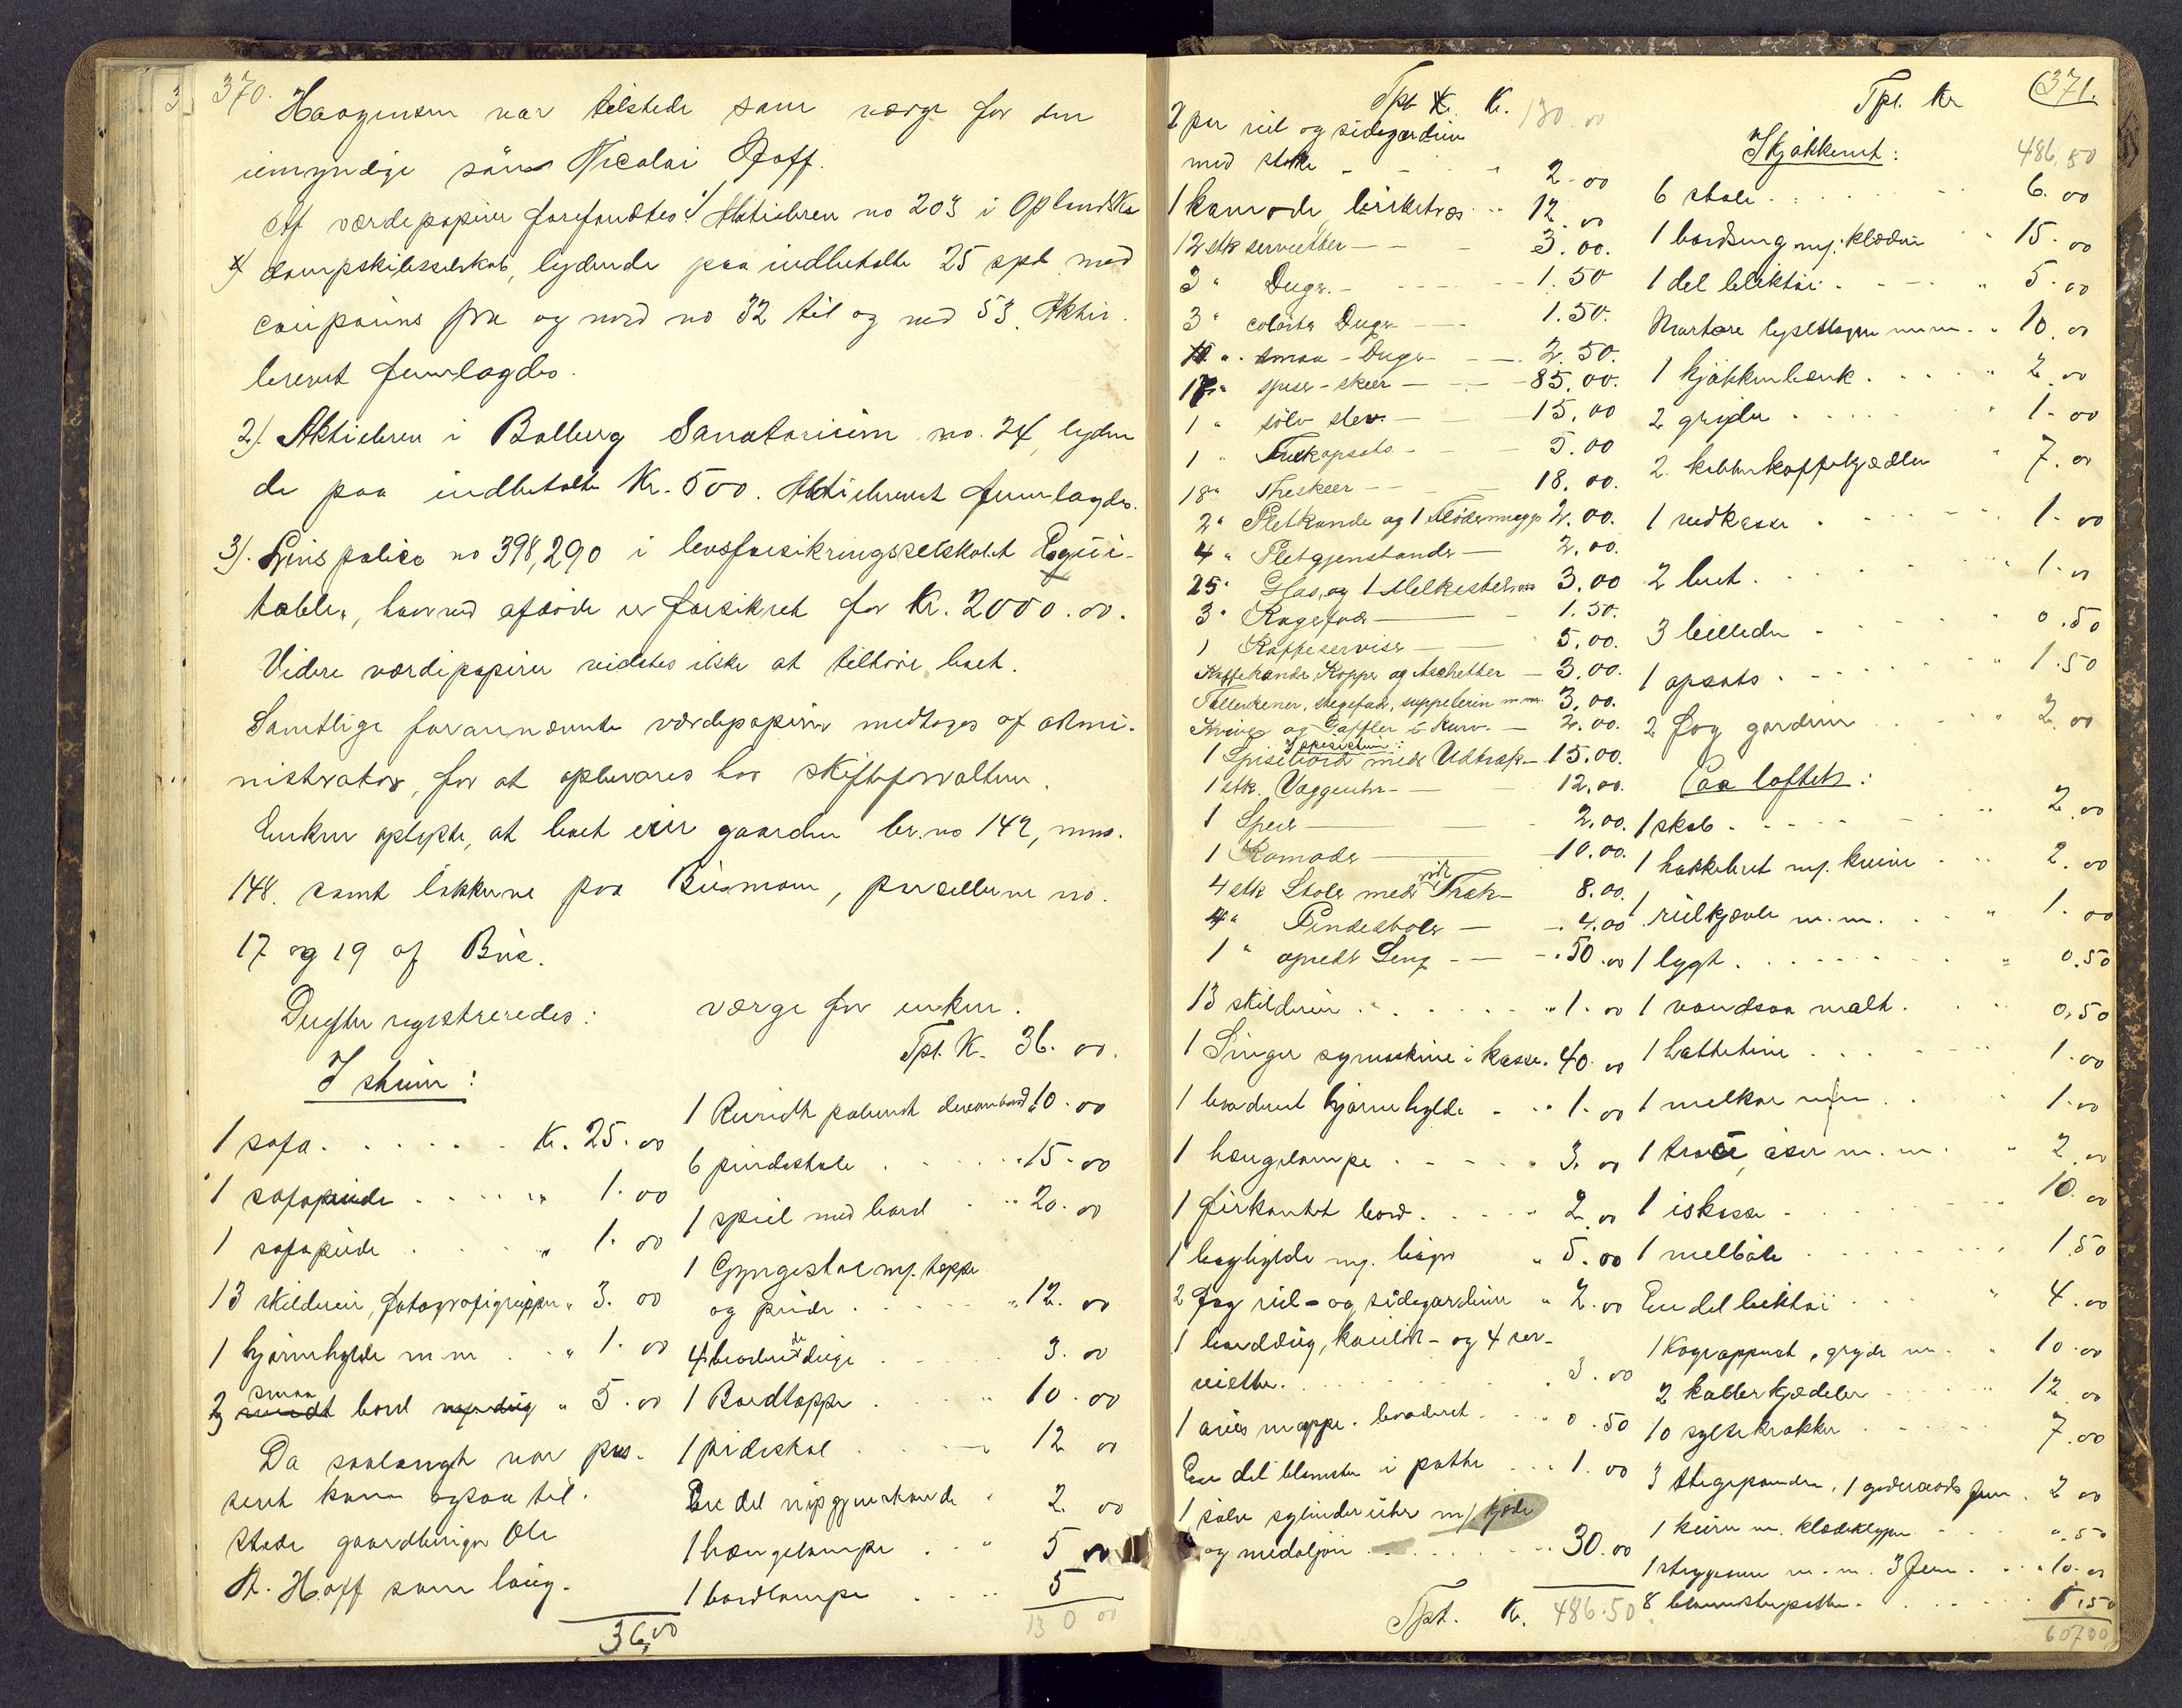 370.
Haagensen var tilstede som værge for den
umyndige søn Nicolai Hoff.
Af værdepapirer forefandtes: 1/ Aktiebrev no 203 i Oplandske
dampskibsselskab, lydende paa indbetalte 25 spd med
coupouns fra og med no 32 til og med 53. Aktie-
brevet fremlagdes.
2). Aktiebrev i Balberg Sanatorium no. 24, lyden
de paa indbetalte Kr. 500. Aktiebrevet fremlagdes.
3). Livspolice no 398,290 i livsforsikringsselskabet Equi-
table, hvorved afdøde er forsikret for Kr. 2000.00.
Videre værdipapirer vidstes ikke at tilhøre boet.
Samtlige forannævnte værdepapirer medtages af admi-
nistrator, for at opbevares hos skifteforvalteren.
Enken oplyste, at boet eier gaarden br. no 142, mno.
148. samt løkkerne paa Busmoen, parcellerne no.
17 og 19 af Bue.
Derefter registreredes:
I stuen:
1 sofa . . . . . . Kr. 25.00
1 sofapude . . . . " 1.00
1 sofapude . . . . " 1.00
13 skilderier, fotografigrupper " 3.00
1 hjørnehylde m m . . " 1.00
2 smaa bord " 5.00
Da saalangt var pas-
seret kom ogsaa til-
stede gaardbruger Ole
A. Hoff som laug-
36,00
værge for enken.
Tpt. K. 36.00.
1 Rundt poleret divanbord " 10.00
6 pindestole . . . . " 15.00
1 speil med bord . . " 20.00
1 Gyngestol m/. teppe
og pude . . . . " 12.00
4 broderede duge . . . 3.00
1 Bordteppe . . . " 10.00
1 pidestal . . . . 12 00
En del nipsgjenstande " 2 00
1 hængelampe . . " 5 00
1 bordlampe . . . . 5
130 00
371.
Tpt. Kr. 130.00
2 par rul og sidegardiner
med stokke - - - " 2.00
1 kamode, birketræ - " 12.00
12 stk servietter - - - 3.00.
3 " Duge. - - - - 1.50
3 " colørte Duge - - 1.50.
" smaa-Duge - - 2.50.
17 " spise-skeer - - 85.00.
1 " sølv slev. - - 15.00
1 " Frukopsats - - 5.00
18 " Theskeer - - - 18.00.
2 " Pletkande og 1 Flødemugge 2.00.
4 " Pletgjenstande - 2.00.
25 " Glas, og 1 Melkestel 3.00
3 " Kagefade - - 1.50.
1 Kaffeservise - - 5.00.
Kaffekande, Kopper og Aschetter - 3.00.
Tallerkener, stegefade, suppeterin m.m. 3.00.
Knive og Gaffler i Kurv. - 2.00.
I spisestuen:
1 Spisebord med Udtræk - 15.00.
1 stk. Væggeuhr - - 12.00.
1 Speil - - 2.00.
1 Komode - - 10.00.
4 stk Stole med Træk - 8.00.
4 " Pindestole - - 4.00
1 " opredt Seng - - - 50.00
13 skilderier . . . . . " 1.00
1 Singer symaskine i kasse. 40.00
1 broderet hjørnehylde - " 1.00
1 hængelampe . . - - " 3.00
1 firkantet bord. . . . " 2.00
1 boghylde m/. bøger " 5.00
2 fag rul- og sidegardiner " 2.00
1 borddug, kaulør- og 4 ser-
vietter. . . . . . . 3.00
1 avis mappe. broderet. . . . 0.50
En del blomster i potte . . . 1.00
1 sølv sylinderuhr m/ kjæde
og medaljon . . . . . . . 30.00
Tpt. Kr. 486.50
Tpt. Kr
I kjøkkenet: 486,50
6 stole . . . . . . 6.00
1 bordseng m/. klæder " 15.00
1 del bliktøi . - - - " 5.00
Mortere lysestager m.m. . " 10.00
1 kjøkkenbænk . . . . " 2.00
2 gryder . . . . . " 1.00
2 kobberkaffekjædler " 7.00
1 vedkasse . . . . . 1.00
2 bret . . . . . . 1.00
3 billeder . . . . . 0.50
1 opsats . . . . . " 1.50
2 fag gardiner . . . " 2.00
Paa loftet:
1 skab . . . . . . " 2.00
1 hakkebret m/. kniv . . . 2.00
1 rulkjævle m.m. . . " 1.00
1 lygt. . . . . . . " 0.50
1 vandsaa malt. . . . 0,50
1 hattetine . . . . . 1.00
1 melkar m m . . . " 1.00
1 trau, øser m.m. . " 2.00
1 iskasse . . . . . 10.00
1 melbøle . . . . . . 1.50
En del bliktøi . . . " 4.00
1 Kogeapparat, gryde m. . " 10.00
2 kobberkjædeler . . . " 12.00
10 syltekrukker . . . . 7.00
3 stegepander, 1 goderaadsjern . 2.00
1 kurv m. klædeklyper . . . ".50
1 strygeovn m.m. 3 jern . . . " 10.00
8 blomsterpotter . . . . . 1.50
607.00